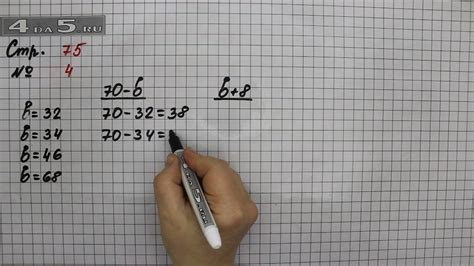 4DA5.RU
Стр. 75
№ 4
70-в   в+8
в=32   70-32=38
в=34   70-34=
в=46
в=68
4DA5.RU